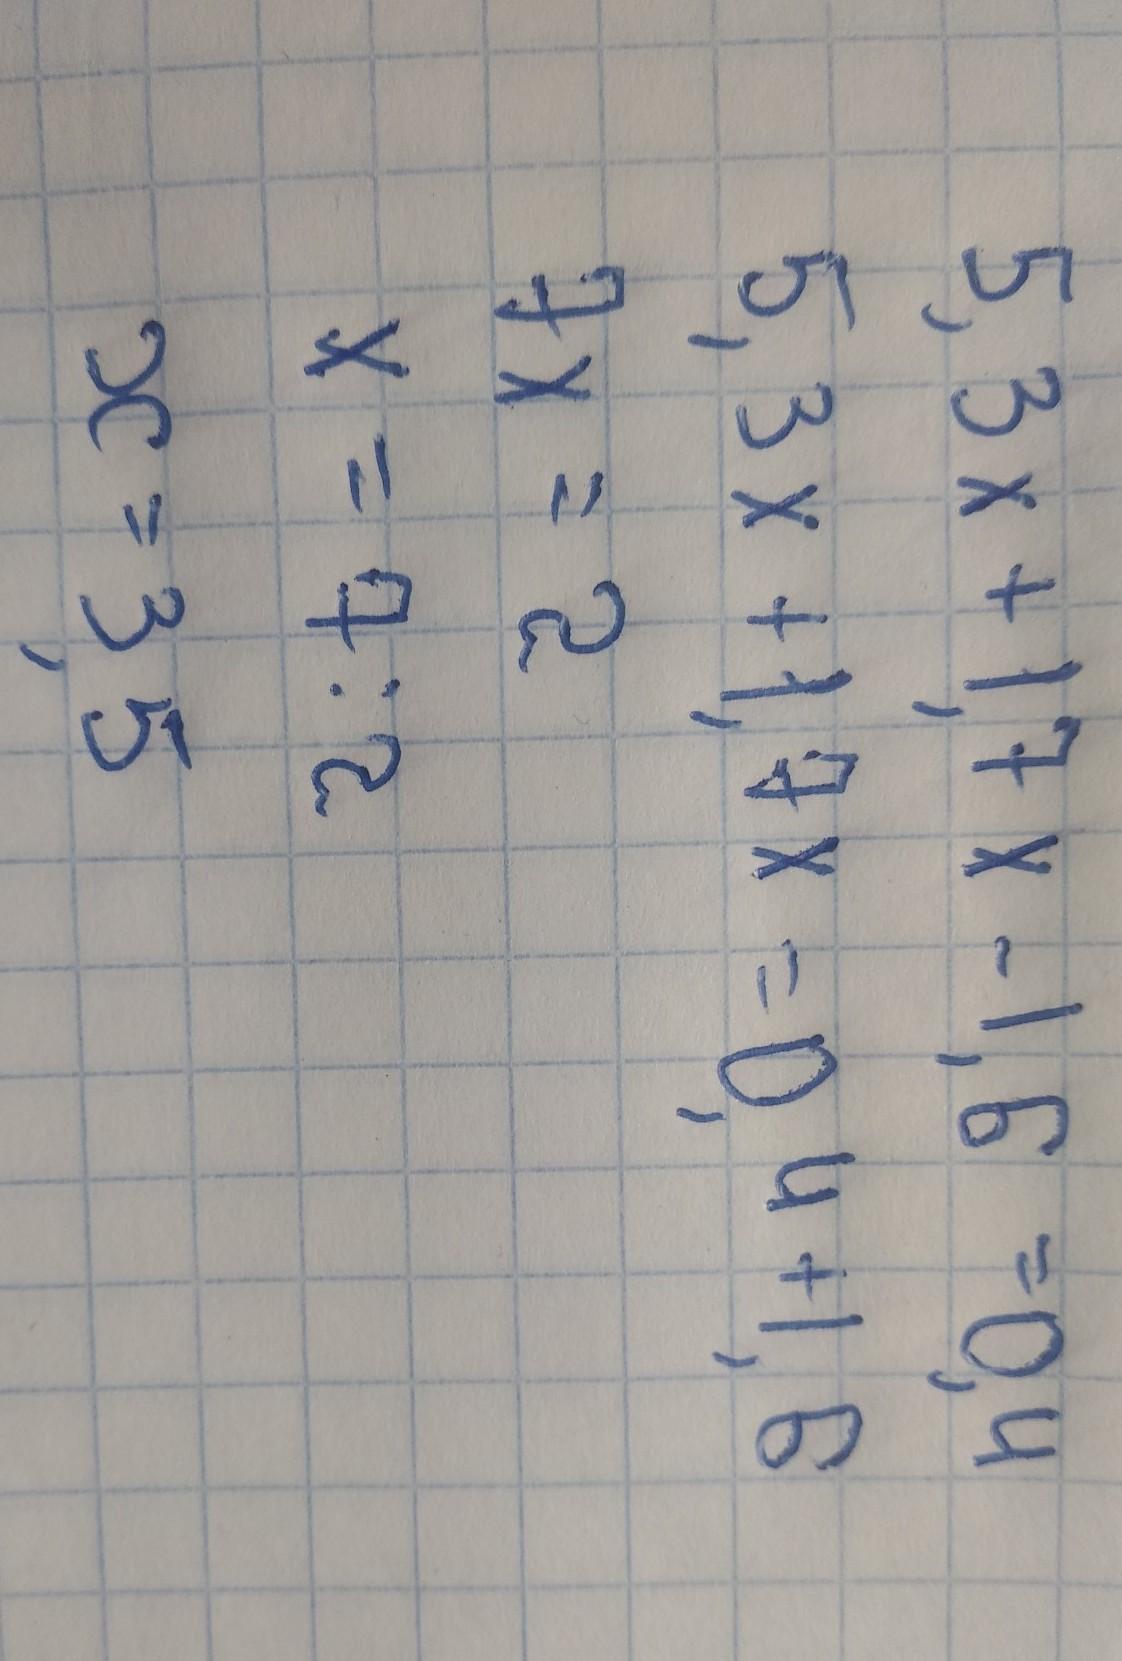 5,3x + 1,7x - 1,6 = 0,4
5,3x + 1,7x = 0,4 + 1,6
7x = 2
x = 7 : 2
x = 3,5